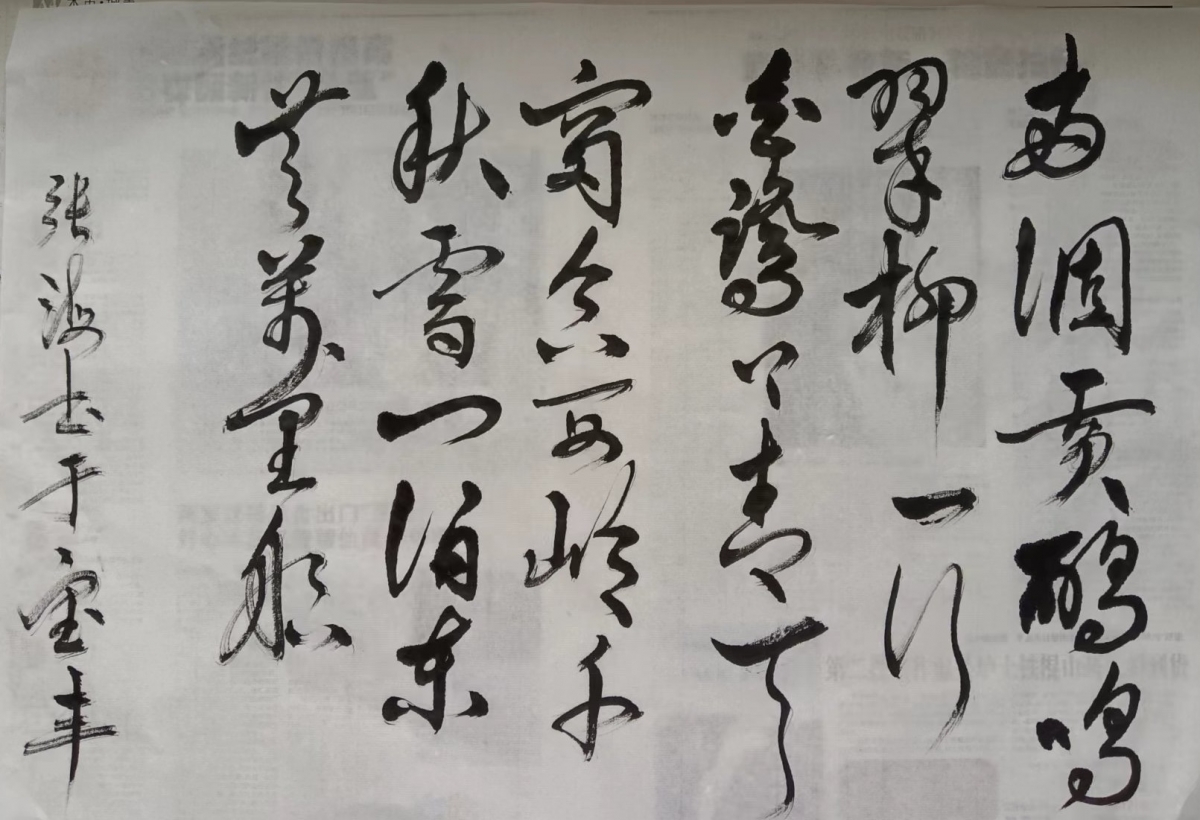 两個黄鹂鸣
翠柳一行
白鹭上青天
窗含西岭千
秋雪门泊东
吴萬里船
张海书于宝丰